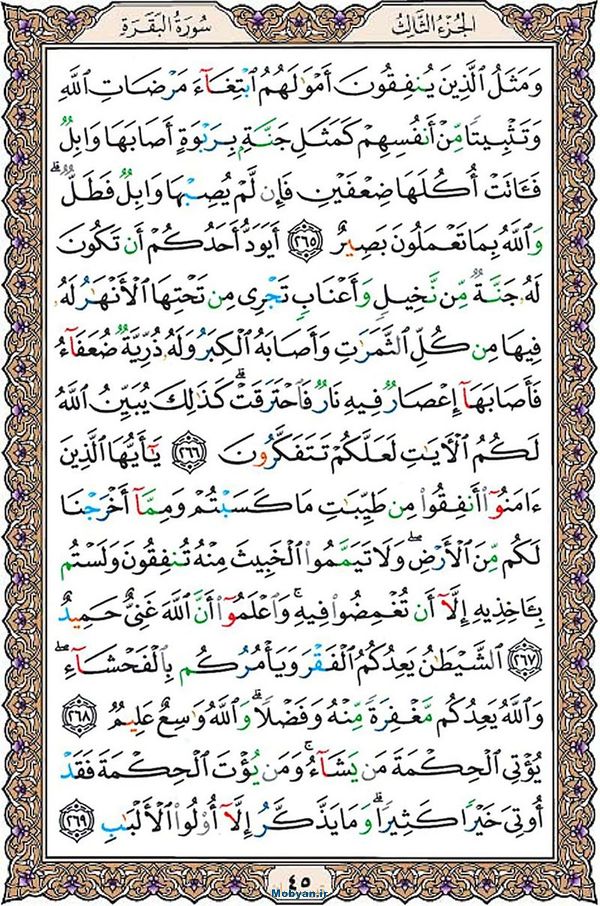 الجُزءُ الثَّالِثُ سُورَةُ البَقَرَةِ
وَمَثَلُ ٱلَّذِينَ يُنفِقُونَ أَمْوَٰلَهُمُ ٱبْتِغَآءَ مَرْضَاتِ ٱللَّهِ
وَتَثْبِيتًا مِّنْ أَنفُسِهِمْ كَمَثَلِ جَنَّةٍۭ بِرَبْوَةٍ أَصَابَهَا وَابِلٌ
فَـَٔاتَتْ أُكُلَهَا ضِعْفَيْنِ فَإِن لَّمْ يُصِبْهَا وَابِلٌ فَطَلٌّ ۗ
وَٱللَّهُ بِمَا تَعْمَلُونَ بَصِيرٌ ٢٦٥ أَيَوَدُّ أَحَدُكُمْ أَن تَكُونَ
لَهُۥ جَنَّةٌ مِّن نَّخِيلٍ وَأَعْنَابٍ تَجْرِى مِن تَحْتِهَا ٱلْأَنْهَٰرُ لَهُۥ
فِيهَا مِن كُلِّ ٱلثَّمَرَٰتِ وَأَصَابَهُ ٱلْكِبَرُ وَلَهُۥ ذُرِّيَّةٌ ضُعَفَآءُ
فَأَصَابَهَآ إِعْصَارٌ فِيهِ نَارٌ فَٱحْتَرَقَتْ ۗ كَذَٰلِكَ يُبَيِّنُ ٱللَّهُ
لَكُمُ ٱلْـَٔايَٰتِ لَعَلَّكُمْ تَتَفَكَّرُونَ ٢٦٦ يَٰٓأَيُّهَا ٱلَّذِينَ
ءَامَنُوٓا۟ أَنفِقُوا۟ مِن طَيِّبَٰتِ مَا كَسَبْتُمْ وَمِمَّآ أَخْرَجْنَا
لَكُم مِّنَ ٱلْأَرْضِ ۖ وَلَا تَيَمَّمُوا۟ ٱلْخَبِيثَ مِنْهُ تُنفِقُونَ وَلَسْتُم
بِـَٔاخِذِيهِ إِلَّآ أَن تُغْمِضُوا۟ فِيهِ ۚ وَٱعْلَمُوٓا۟ أَنَّ ٱللَّهَ غَنِىٌّ حَمِيدٌ
٢٦٧ ٱلشَّيْطَٰنُ يَعِدُكُمُ ٱلْفَقْرَ وَيَأْمُرُكُم بِٱلْفَحْشَآءِ ۖ
وَٱللَّهُ يَعِدُكُم مَّغْفِرَةً مِّنْهُ وَفَضْلًا ۗ وَٱللَّهُ وَٰسِعٌ عَلِيمٌ ٢٦٨
يُؤْتِى ٱلْحِكْمَةَ مَن يَشَآءُ ۚ وَمَن يُؤْتَ ٱلْحِكْمَةَ فَقَدْ
أُوتِىَ خَيْرًا كَثِيرًا ۗ وَمَا يَذَّكَّرُ إِلَّآ أُو۟لُوا۟ ٱلْأَلْبَٰبِ ٢٦٩
٤٥
Mobyan.ir